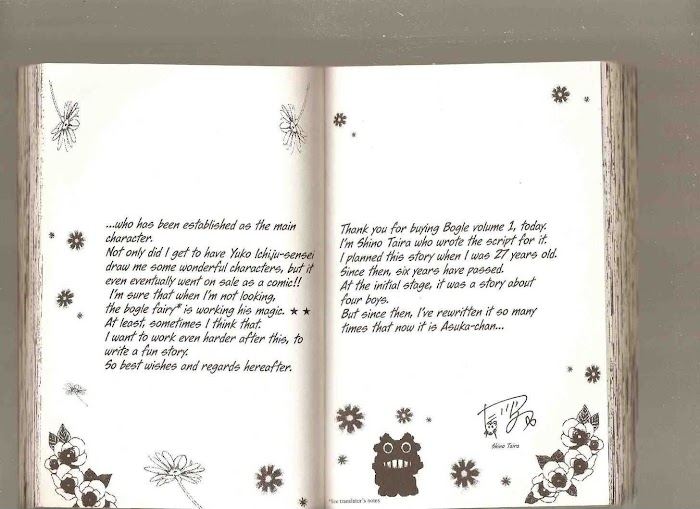 Thank you for buying Bogle volume 1, today.
I'm Shino Taira who wrote the script for it.
I planned this story when I was 27 years old.
Since then, six years have passed.
At the initial stage, it was a story about
four boys.
But since then, I've rewritten it so many
times that now it is Asuka-chan...
Shino Taira
*See translator's notes
...who has been established as the main
character.
Not only did I get to have Yuko Ichiju-sensei
draw me some wonderful characters, but it
even eventually went on sale as a comic!!
I'm sure that when I'm not looking,
the bogle fairy* is working his magic. ★ ★
At least, sometimes I think that.
I want to work even harder after this, to
write a fun story.
So best wishes and regards hereafter.